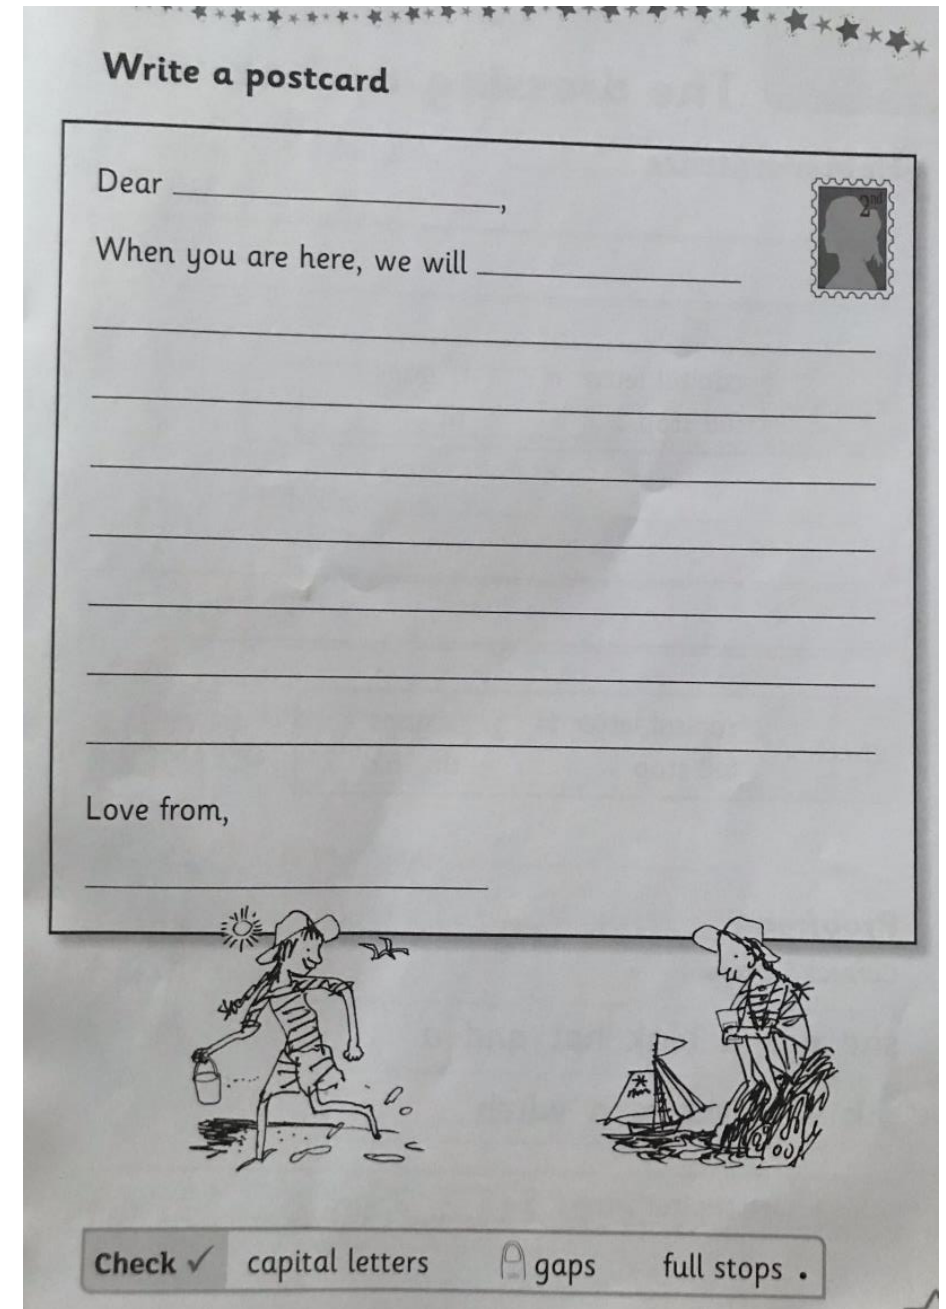 Write a postcard
Dear ____________________,
2nd
When you are here, we will ________________
Love from,
Check ✓ capital letters gaps full stops .